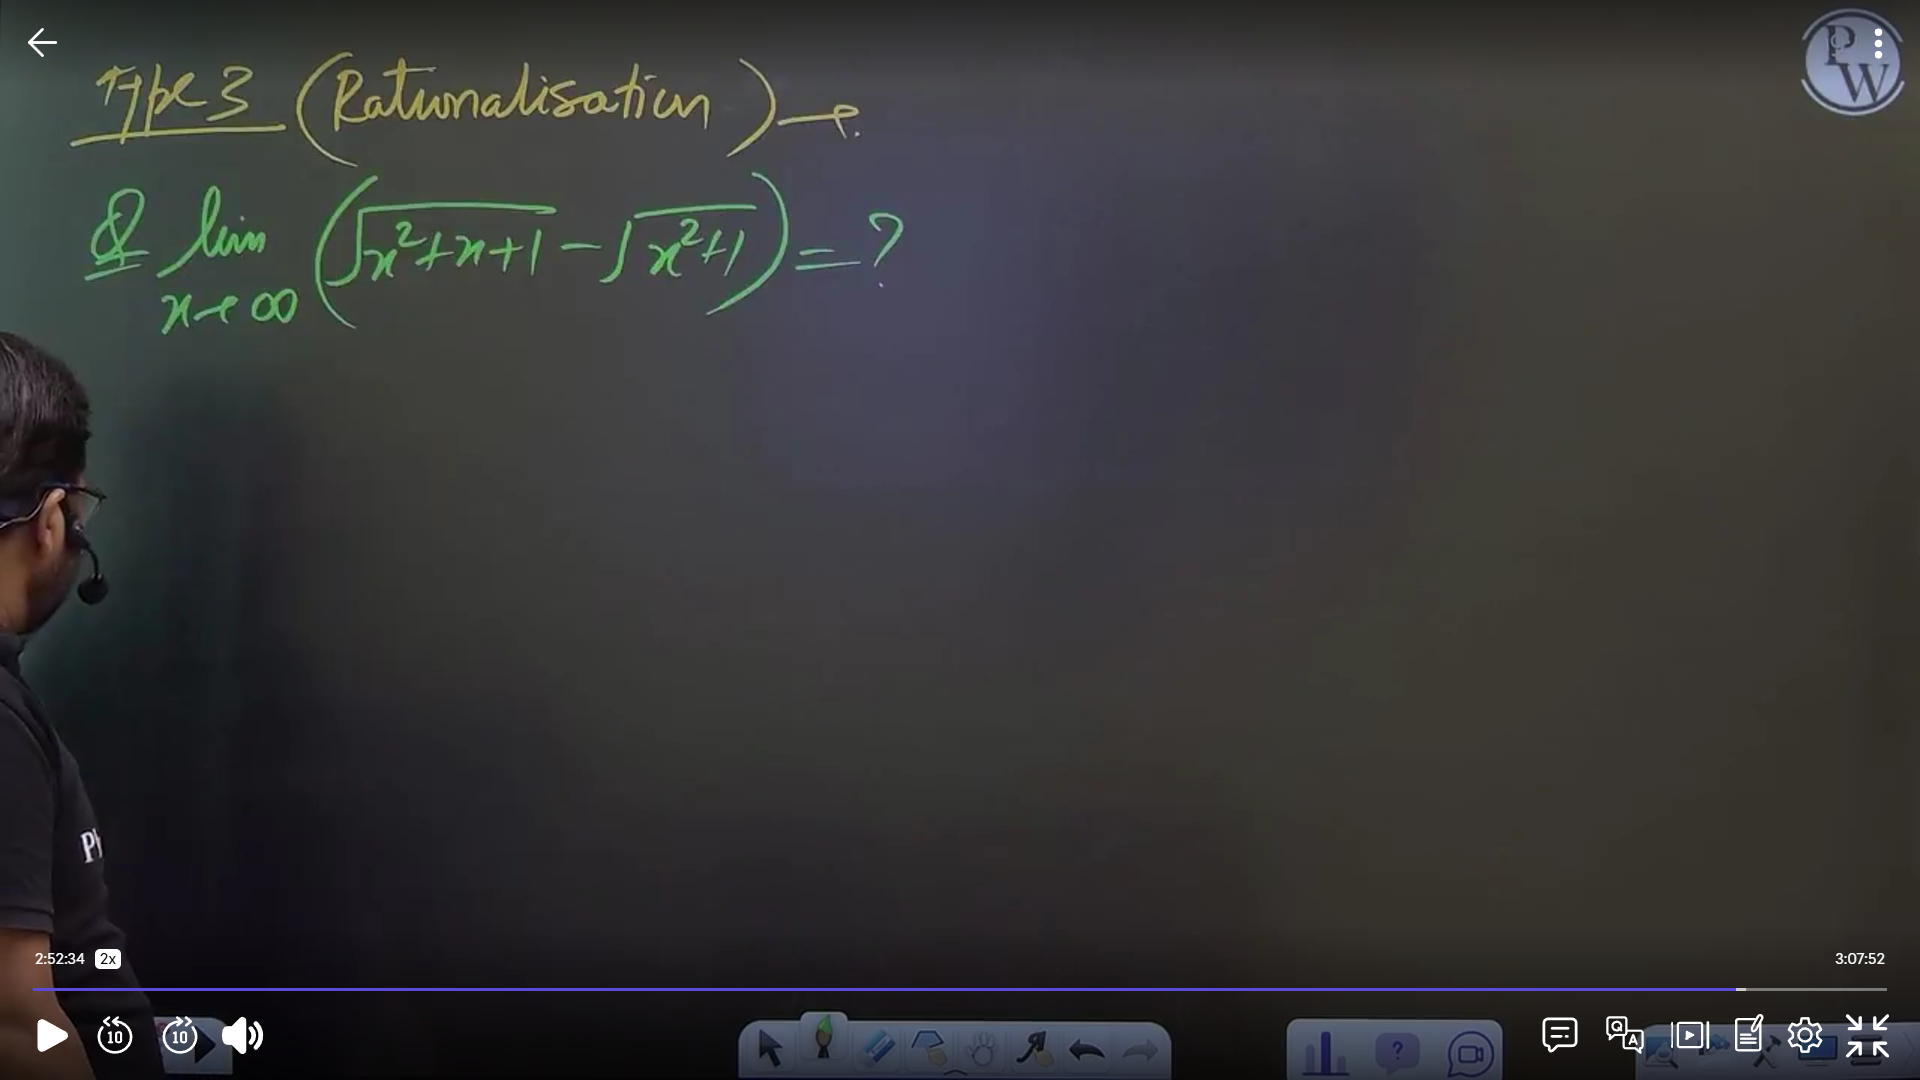 Type 3 (Rationalisation) →
Q lim (√x²+x+1 - √x²+1) = ?
x→∞
PW
2:52:34 2x
3:07:52
10 10